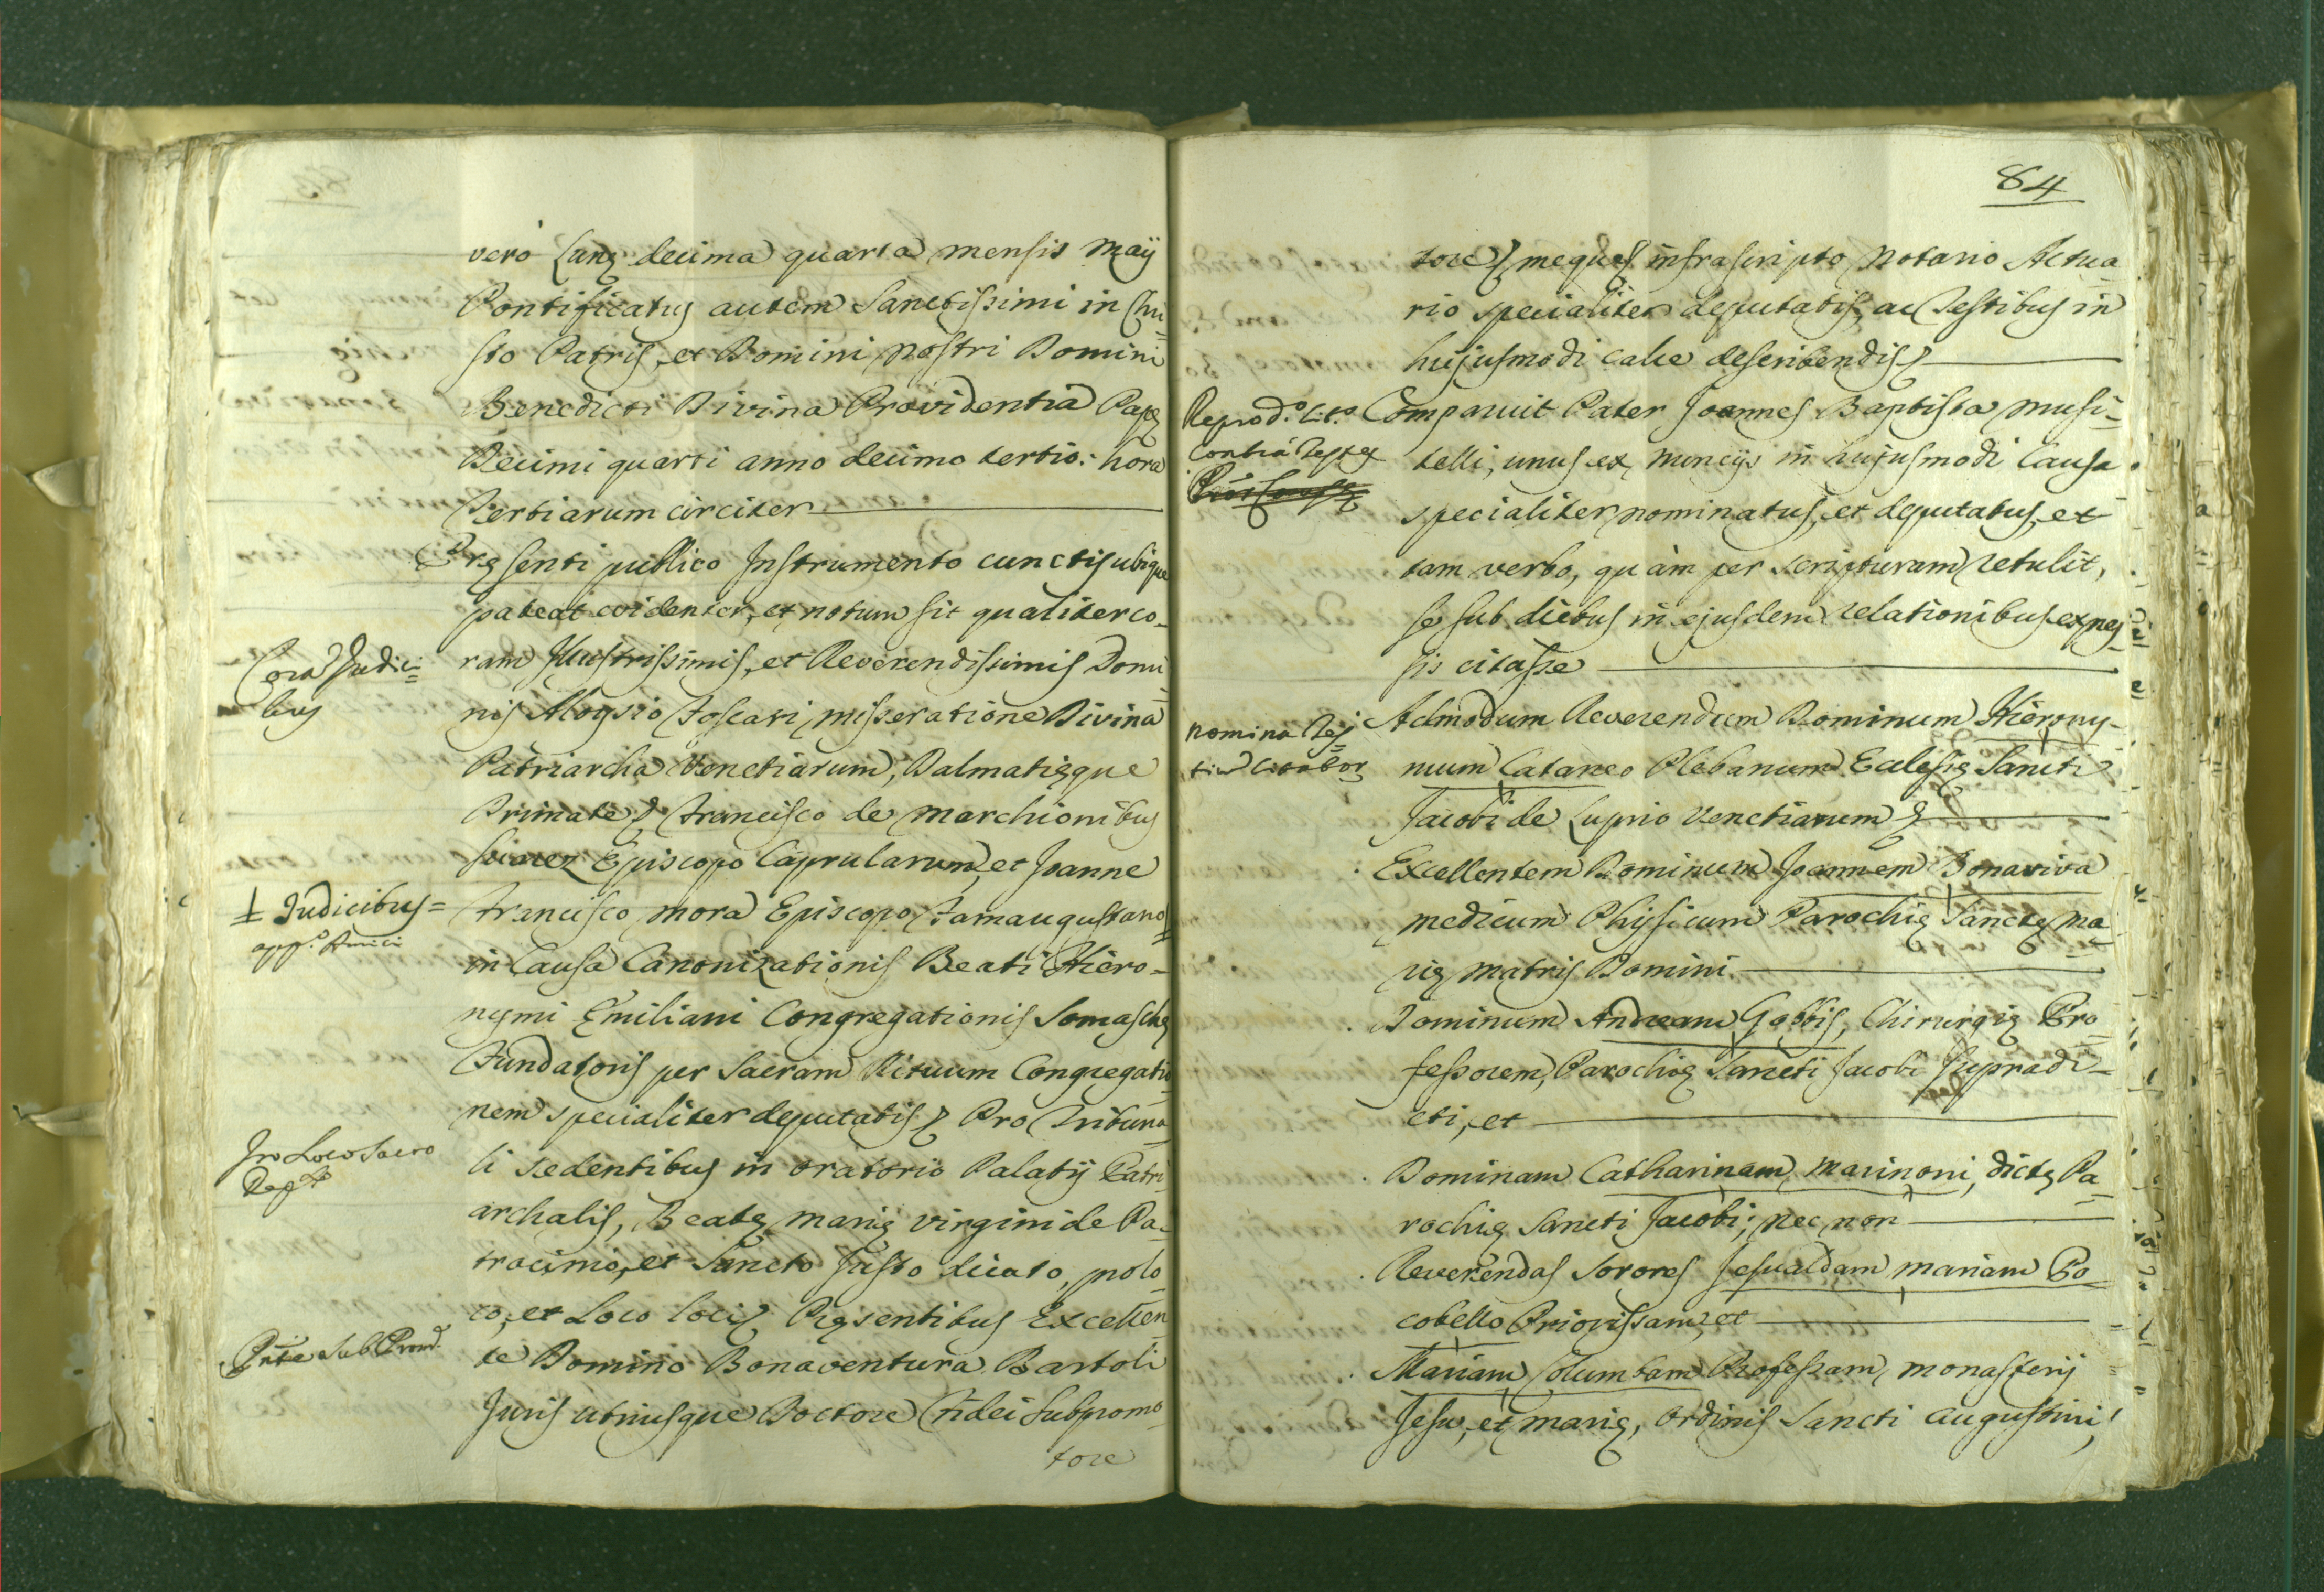 vero Lunæ decima quarta mensis Maÿ
Pontificatus autem Sanctissimi in Chri=
sto Patris, et Domini Nostri Domini
Benedicti Divina Providentia Papæ
Decimi quarti anno decimo tertio: hora
Tertiarum circiter
Præsenti publico Instrumento cunctis ubique
pateat evidenter, et notum sit qualiter co=
Corā Judici=
bus
ram Illustrissimis, et Reverendissimis Domi=
nis Aloysio Foscari, misseratione Divina
Patriarcha Venetiarum, Dalmatiæque
Primate & Francisco de Marchionibus
Suarez Episcopo Caprularum, et Joanne
Judicibus=
Francisco Mora Episcopo Famaugustano
in Causa Canonizationis Beati Hiero=
nymi Emiliani Congregationis Somaschæ
Fundatoris per Sacram Rituum Congregatio
nem specialiter deputatis & Pro Tribuna=
In Loco Sacro
li sedentibus in oratorio Palatÿ Patri=
archalis, Beatæ Mariæ Virgini de Pa=
trocinio, et Sancto Justo dicato, pro lo=
co, et Loco loci & Præsentibus Excellen=
Pnte SubProm.
te Domino Bonaventura Bartoli
Juris utriusque Doctore Fidei Subpromo=
tore
84
tore & meque infrascripto Notario Actua
rio specialiter deputatis, ac Testibus in
hujusmodi calce describendis &
Reprod.o Lit.
contra Testes
Comparuit Pater Joannes Baptista Musi=
telli, unus ex Nunciÿs in hujusmodi Causa
specialiter nominatus, et deputatus, et
tam verbo, quàm per scripturam retulit,
se sub diebus in ejusdem relationibus expres=
sis citasse
Nomina Tes=
tiū Citator
Admodum Reverendum Dominum Hierony=
mum Cataneo Plebanum Ecclesiæ Sancti
Jacobi de Luprio Venetiarum &
Excellentem Dominum Joannem Bonaviva
Medicum Phisicum Parochiæ Sanctæ Ma=
riæ Matris Domini
Dominum Andream Gobbis, Chirurgiæ Pro=
fessorem, Parochiæ Sancti Jacobi Supradi=
cti, et
Dominam Catharinam Marinoni, dictæ Pa=
rochiæ Sancti Jacobi; nec non
Reverendas Sorores Jesualdam Mariam Po
cobello Priorissam, et
Mariam Columbam Professam, Monasterÿ
Jesu, et Mariæ, ordinis Sancti Augustini,